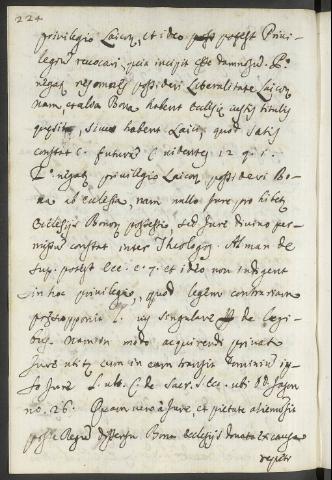 224
privilegio Laicor, et ideo potest Privi-
legiu revocari, quia incipit esse damnosu. P.º
negat possideri Liberalitate Laicor,
nam et alia Bona habent Ecclesie iustis titulis
quesita, sicut habent Laici, quod satis
constat c. futura c. videntes 12 q. 1.
negat privilegio Laicor, possideri Bo-
na ab Ecclesia, nam nullo Jure prohibet
Ecclesijs Bonor possessio, sed Jure divino per-
missu constat inter Theologos. Alman de
Sup. potest Ecc. c. 7. et ideo non indigent
in hoc privilegio, quod legem contrariam
presupponit l. ius singulare ff de Legi-
bus. Nam in modo acquirendi privato
Jure utitur cum in eam transit Dominiu ip-
so Jure l. ult. C. de Sacr. Ecc. ubi Jason
no. 26. Quam vero à Jure, et pietate alienu sit
posse Rege Bona Ecclesijs donata ex causa